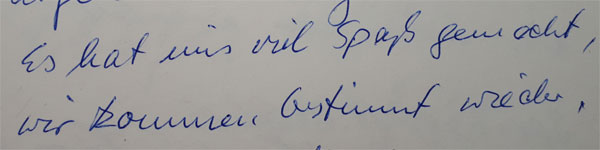 Es hat uns viel Spaß gemacht,
wir kommen bestimmt wieder.